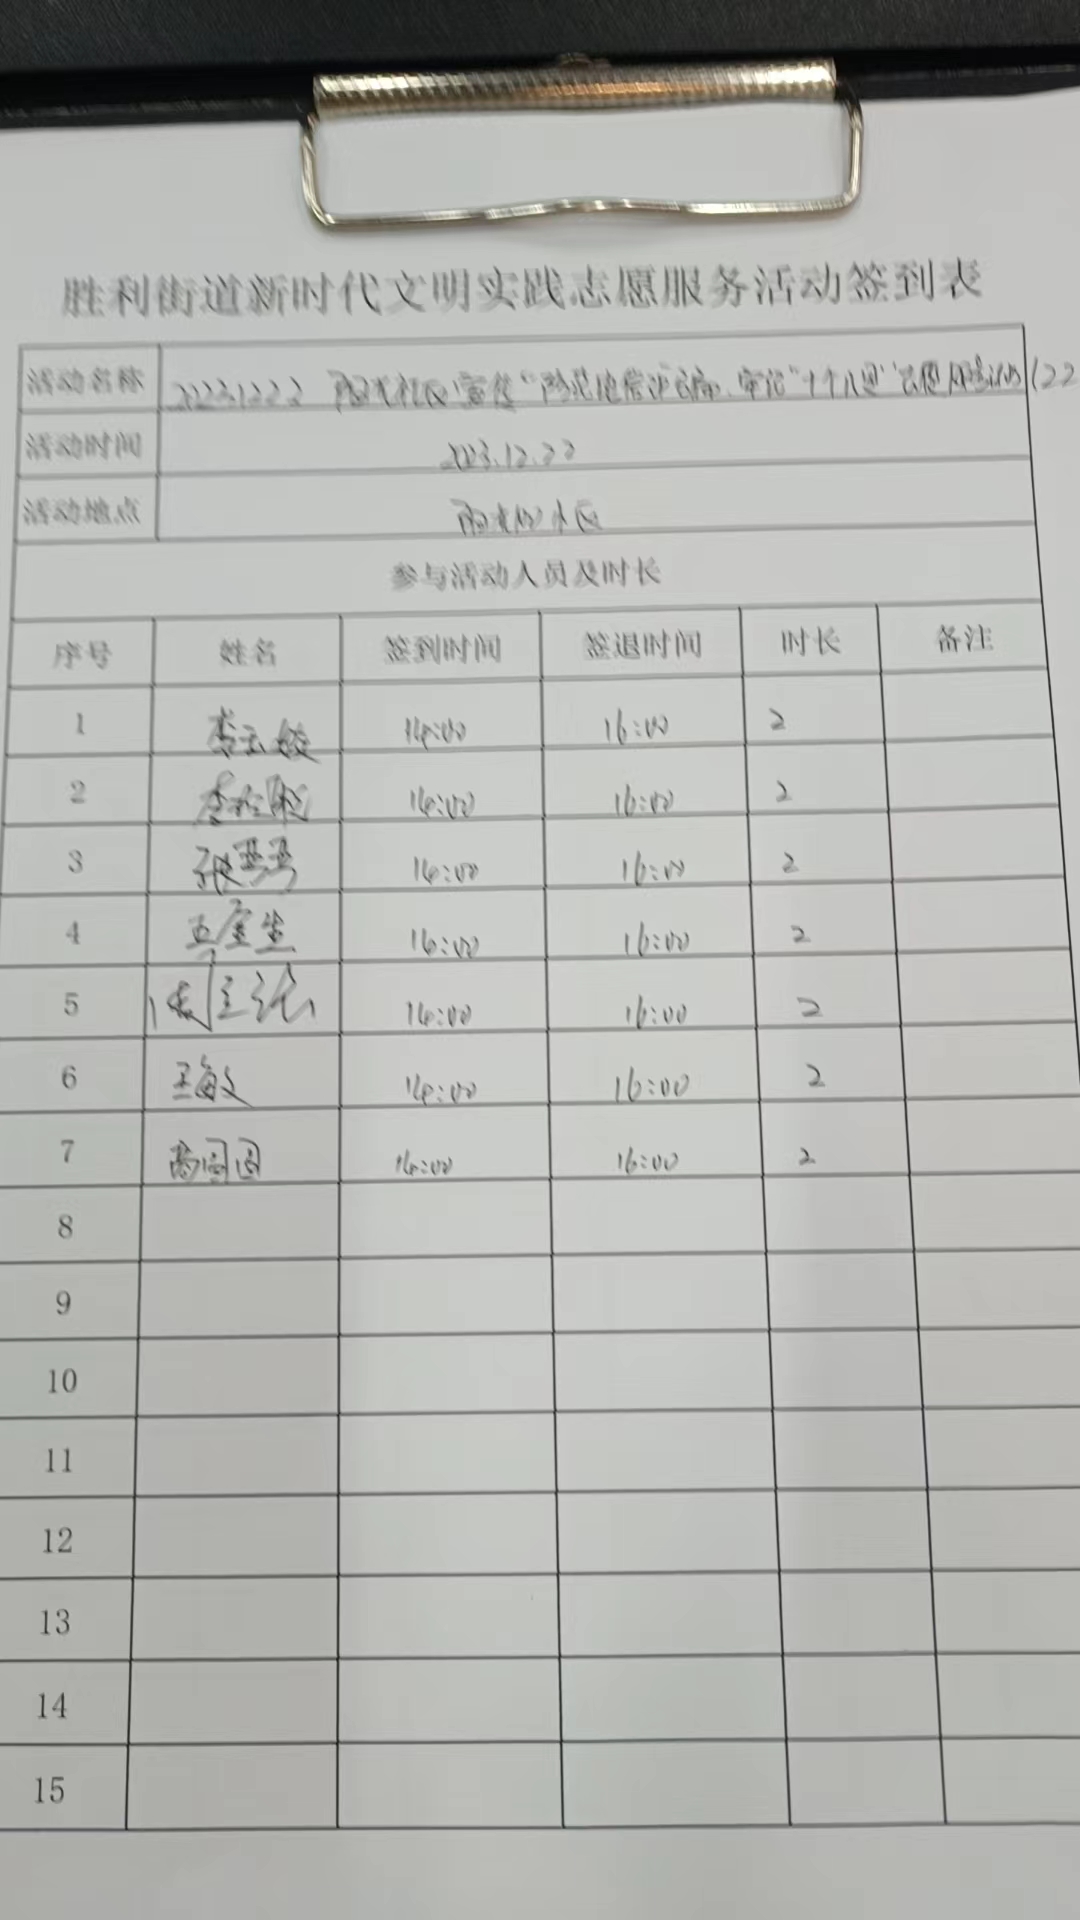 胜利街道新时代文明实践志愿服务活动签到表
活动名称 2023.12.22 阳光社区宣传"防范电信诈骗、牢记"十个凡是"志愿服务活动122
活动时间 2023.12.22
活动地点 小区
参与活动人员及时长
序号 姓名 签到时间 签退时间 时长 备注
1 14:00 16:00 2
2 14:00 16:00 2
3 张 14:00 16:00 2
4 14:00 16:00 2
5 14:00 16:00 2
6 王敏 14:00 16:00 2
7 14:00 16:00 2
8
9
10
11
12
13
14
15